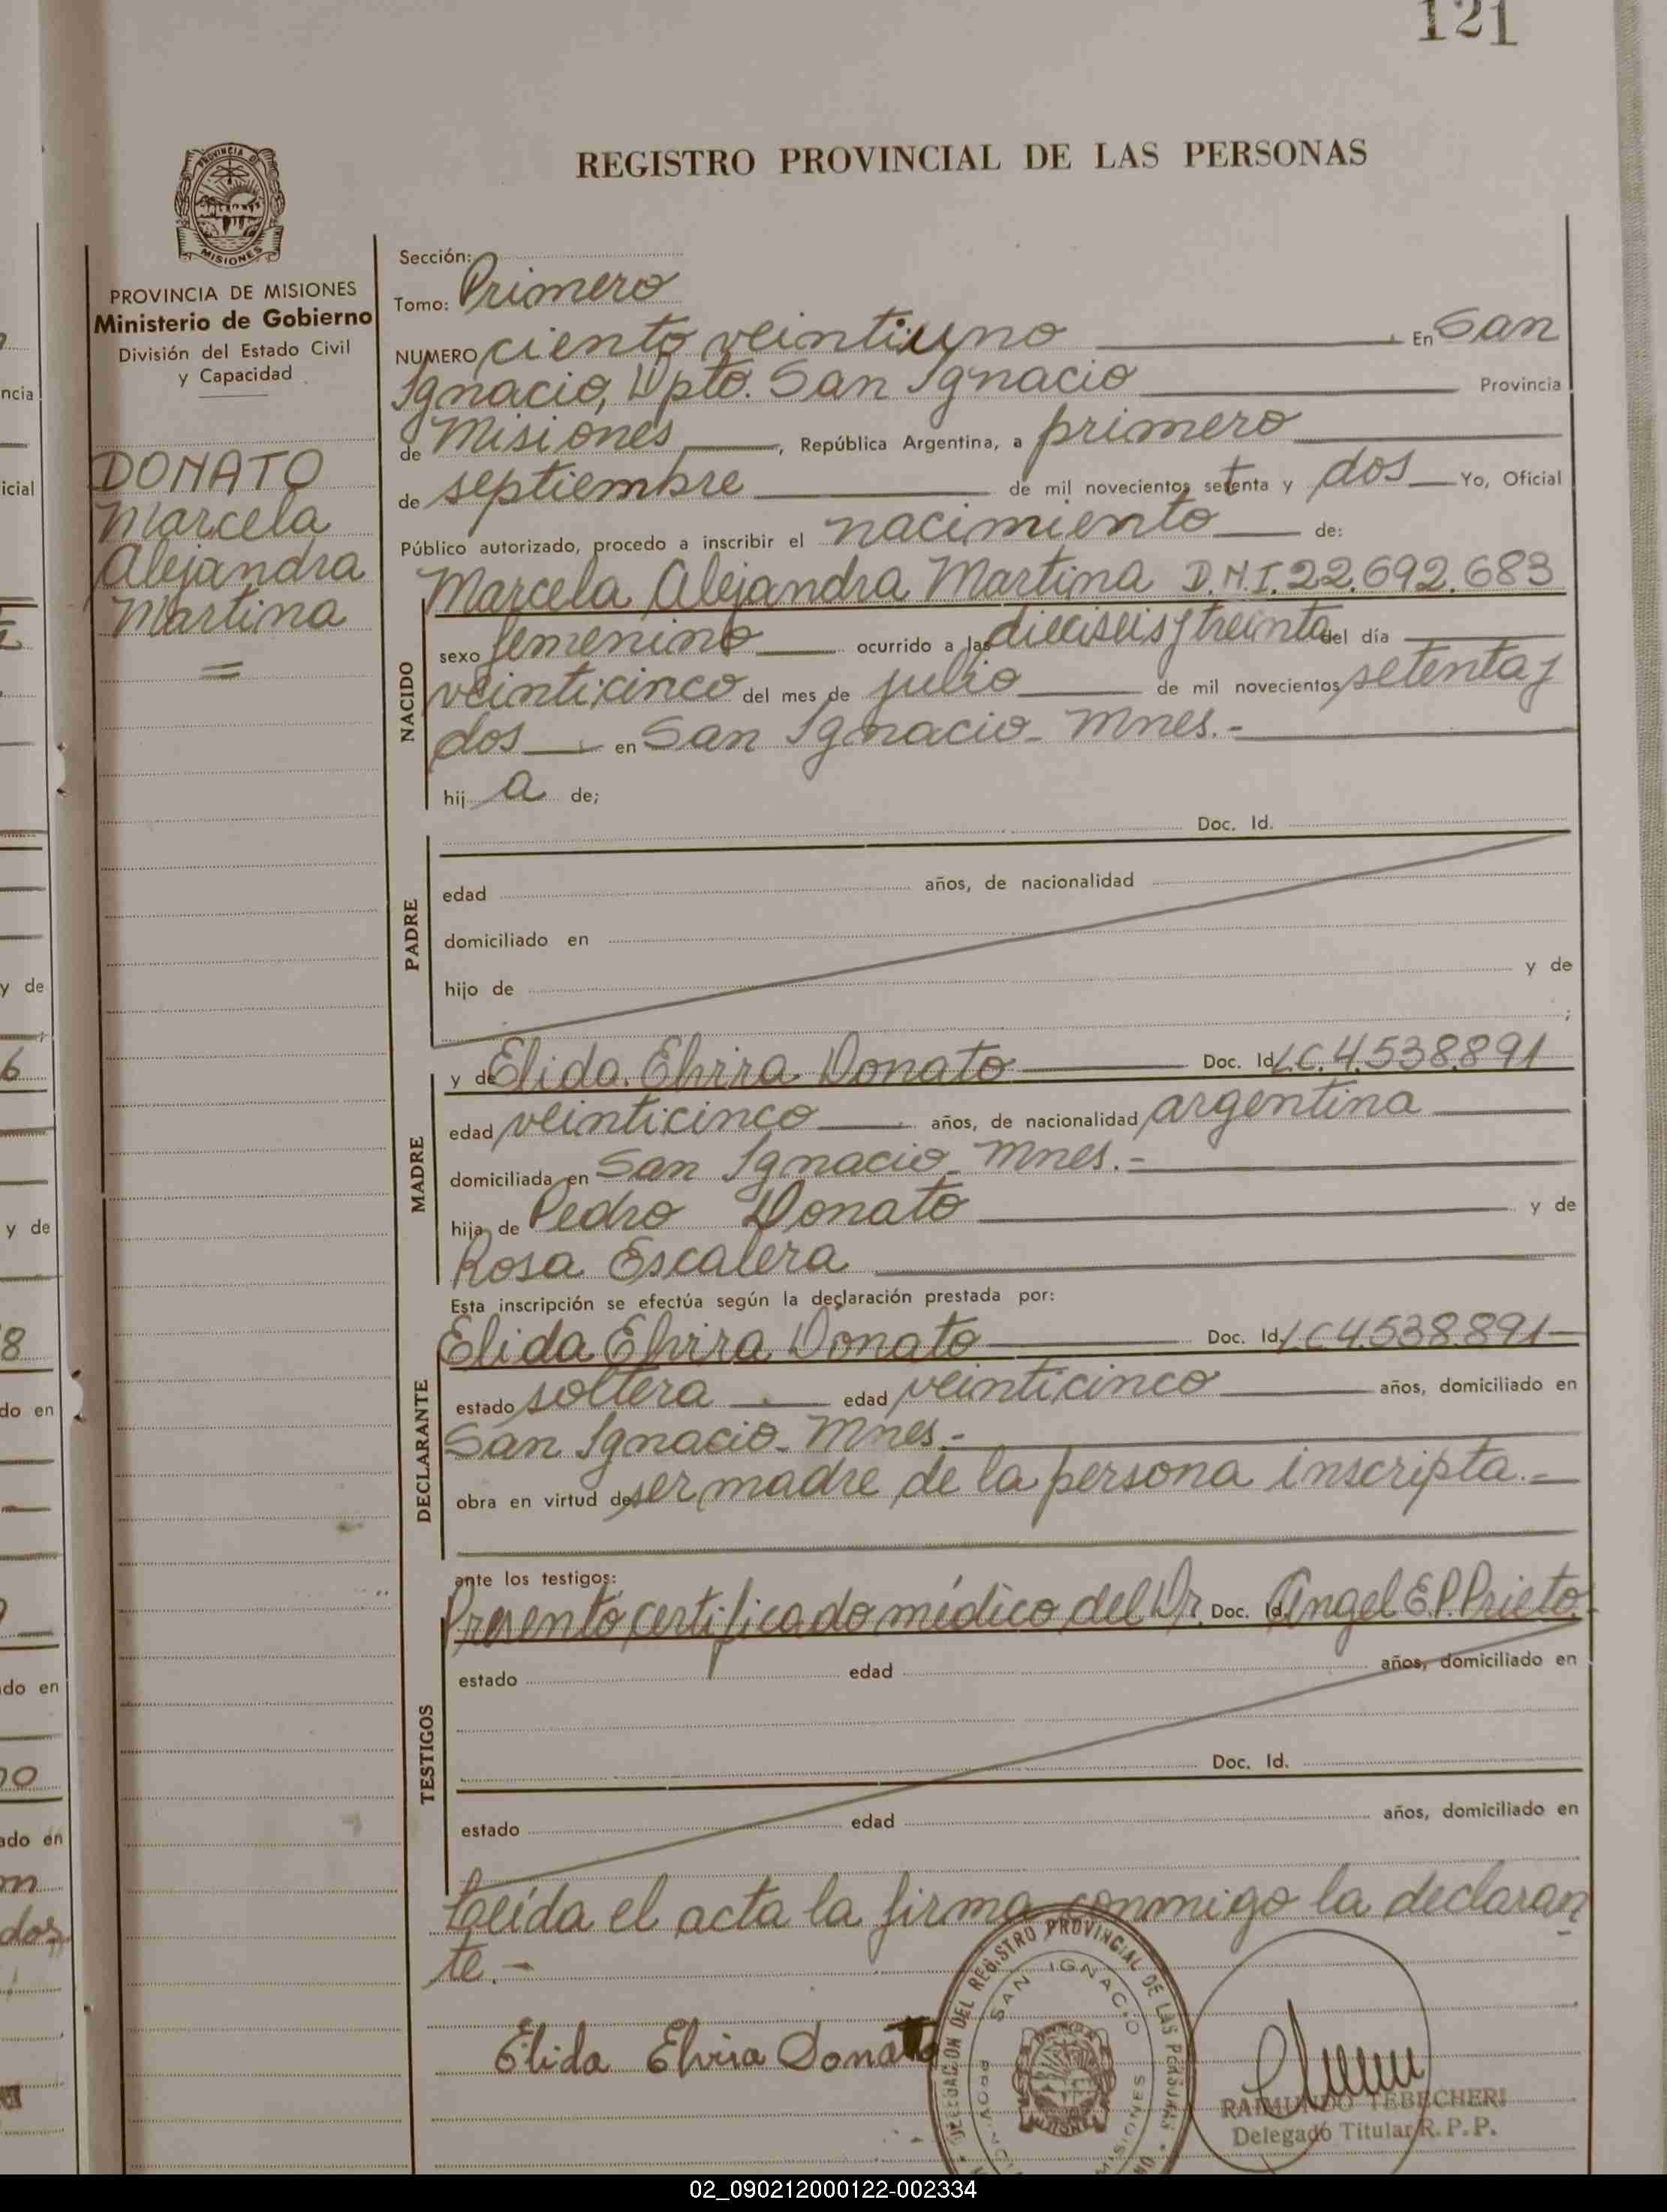 121
REGISTRO PROVINCIAL DE LAS PERSONAS
PROVINCIA DE
MISIONES
PROVINCIA DE MISIONES
Ministerio de Gobierno
División del Estado Civil
y Capacidad
DONATO
Marcela
Alejandra
Martina
=
Sección:
Tomo: Primero
NUMERO ciento veintiuno En San
Ignacio, Dpto. San Ignacio Provincia
de Misiones, República Argentina, a primero
de septiembre de mil novecientos setenta y dos Yo, Oficial
Público autorizado, procedo a inscribir el nacimiento de:
Marcela Alejandra Martina D.N.I. 22.692.683
NACIDO
sexo femenino ocurrido a las dieciseis y treinta del día
veinticinco del mes de julio de mil novecientos setenta y
dos en San Ignacio - Mnes.-
hij a de;
PADRE
Doc. Id.
edad años, de nacionalidad
domiciliado en
hijo de y de
;
MADRE
y de Elida Elvira Donato Doc. Id L.C. 4.538.891
edad veinticinco años, de nacionalidad argentina
domiciliada en San Ignacio - Mnes.-
hija de Pedro Donato y de
Rosa Escalera
Esta inscripción se efectúa según la declaración prestada por:
DECLARANTE
Elida Elvira Donato Doc. Id. L.C 4.538.891
estado soltera edad veinticinco años, domiciliado en
San Ignacio - Mnes.-
obra en virtud de ser madre de la persona inscripta.-
ante los testigos:
TESTIGOS
Presentó certificado médico del Dr. Doc. Id. Angel E.P. Prieto.
estado edad años, domiciliado en
Doc. Id.
estado edad años, domiciliado en
Leída el acta la firma conmigo la declaran
te.-
Elida Elvira Donato
DELEGACION DEL REGISTRO PROVINCIAL DE LAS PERSONAS
SAN IGNACIO
MISIONES
RAIMUNDO TEBECHERI
Delegado Titular R. P. P.
ncia
icial
y de
6
y de
8
do en
do en
do en
dos
02_090212000122-002334